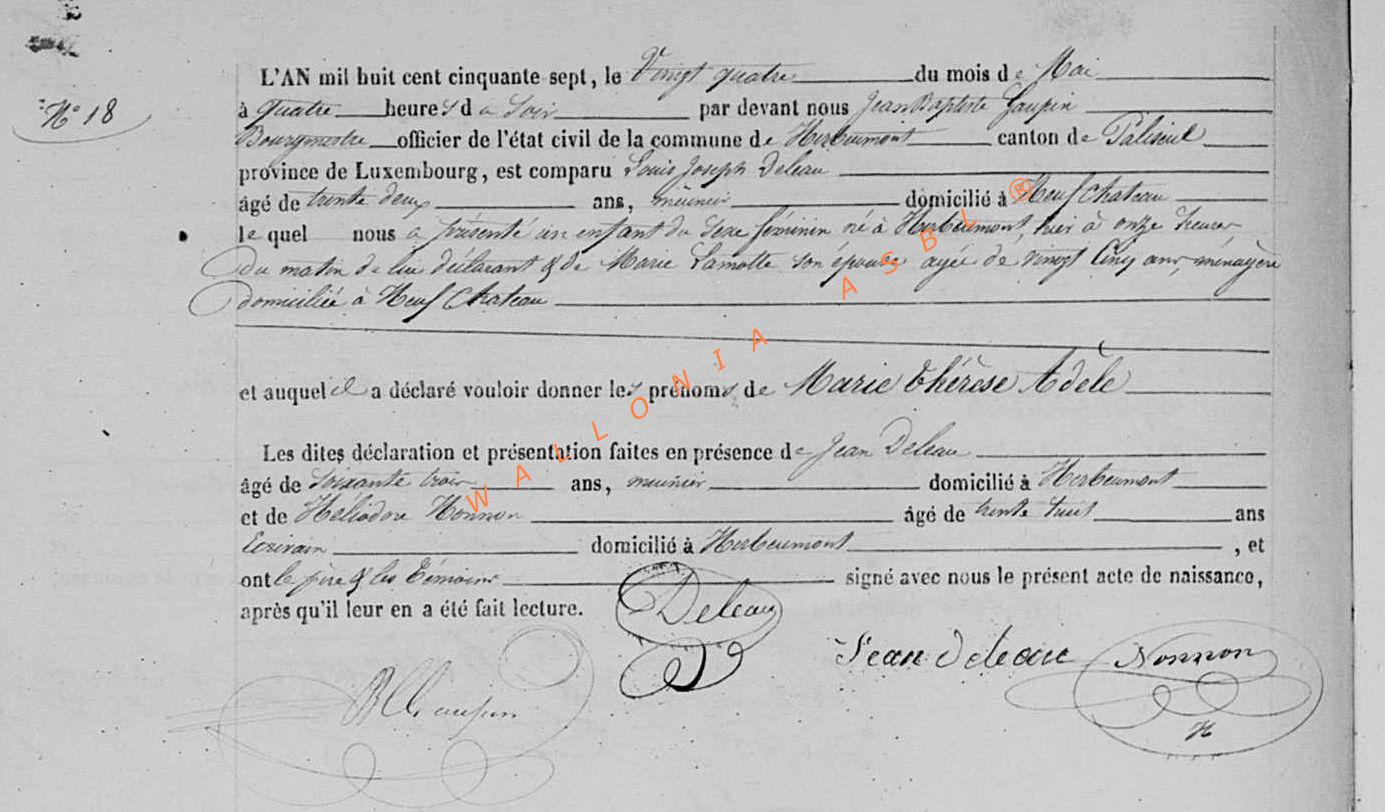 N° 18
L'AN mil huit cent cinquante sept, le Vingt quatre du mois de Mai
à quatre heures du Soir par devant nous Jean Baptiste Gaupin
Bourgmestre officier de l'état civil de la commune de Herbeumont canton de Paliseul
province de Luxembourg, est comparu Louis Joseph Deleau
âgé de trente deux ans, meunier domicilié à Neufchateau
le quel nous a présenté un enfant du Sexe féminin né à Herbeumont, hier à onze heures
du matin de lui déclarant & de Marie Lamotte son épouse agée de vingt Cinq ans, ménagère
domiciliée à Neuf Chateau
et auquel il a déclaré vouloir donner les prénoms de Marie Thérèse Adèle
Les dites déclaration et présentation faites en présence de Jean Deleau
âgé de Soixante trois ans, meunier domicilié à Herbeumont
et de Héliodore Nonnon âgé de trente huit ans
Ecrivain domicilié à Herbeumont, et
ont le père & les témoins signé avec nous le présent acte de naissance,
après qu'il leur en a été fait lecture.
Deleau
Jean deleau Nonnon
H
WALLONIA ASBL ®